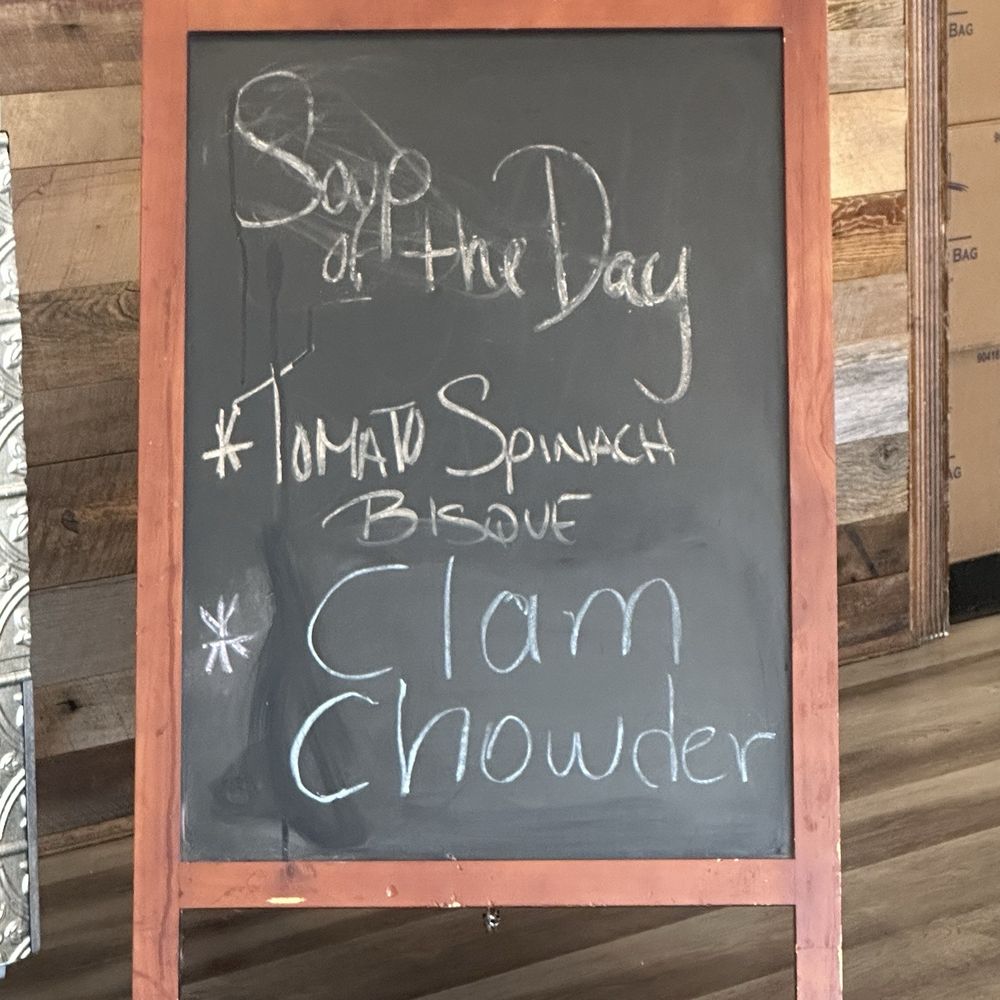 Soup
of the Day
*TOMATO SPINACH
BISQUE
* Clam
Chowder
BAG
BAG
AG